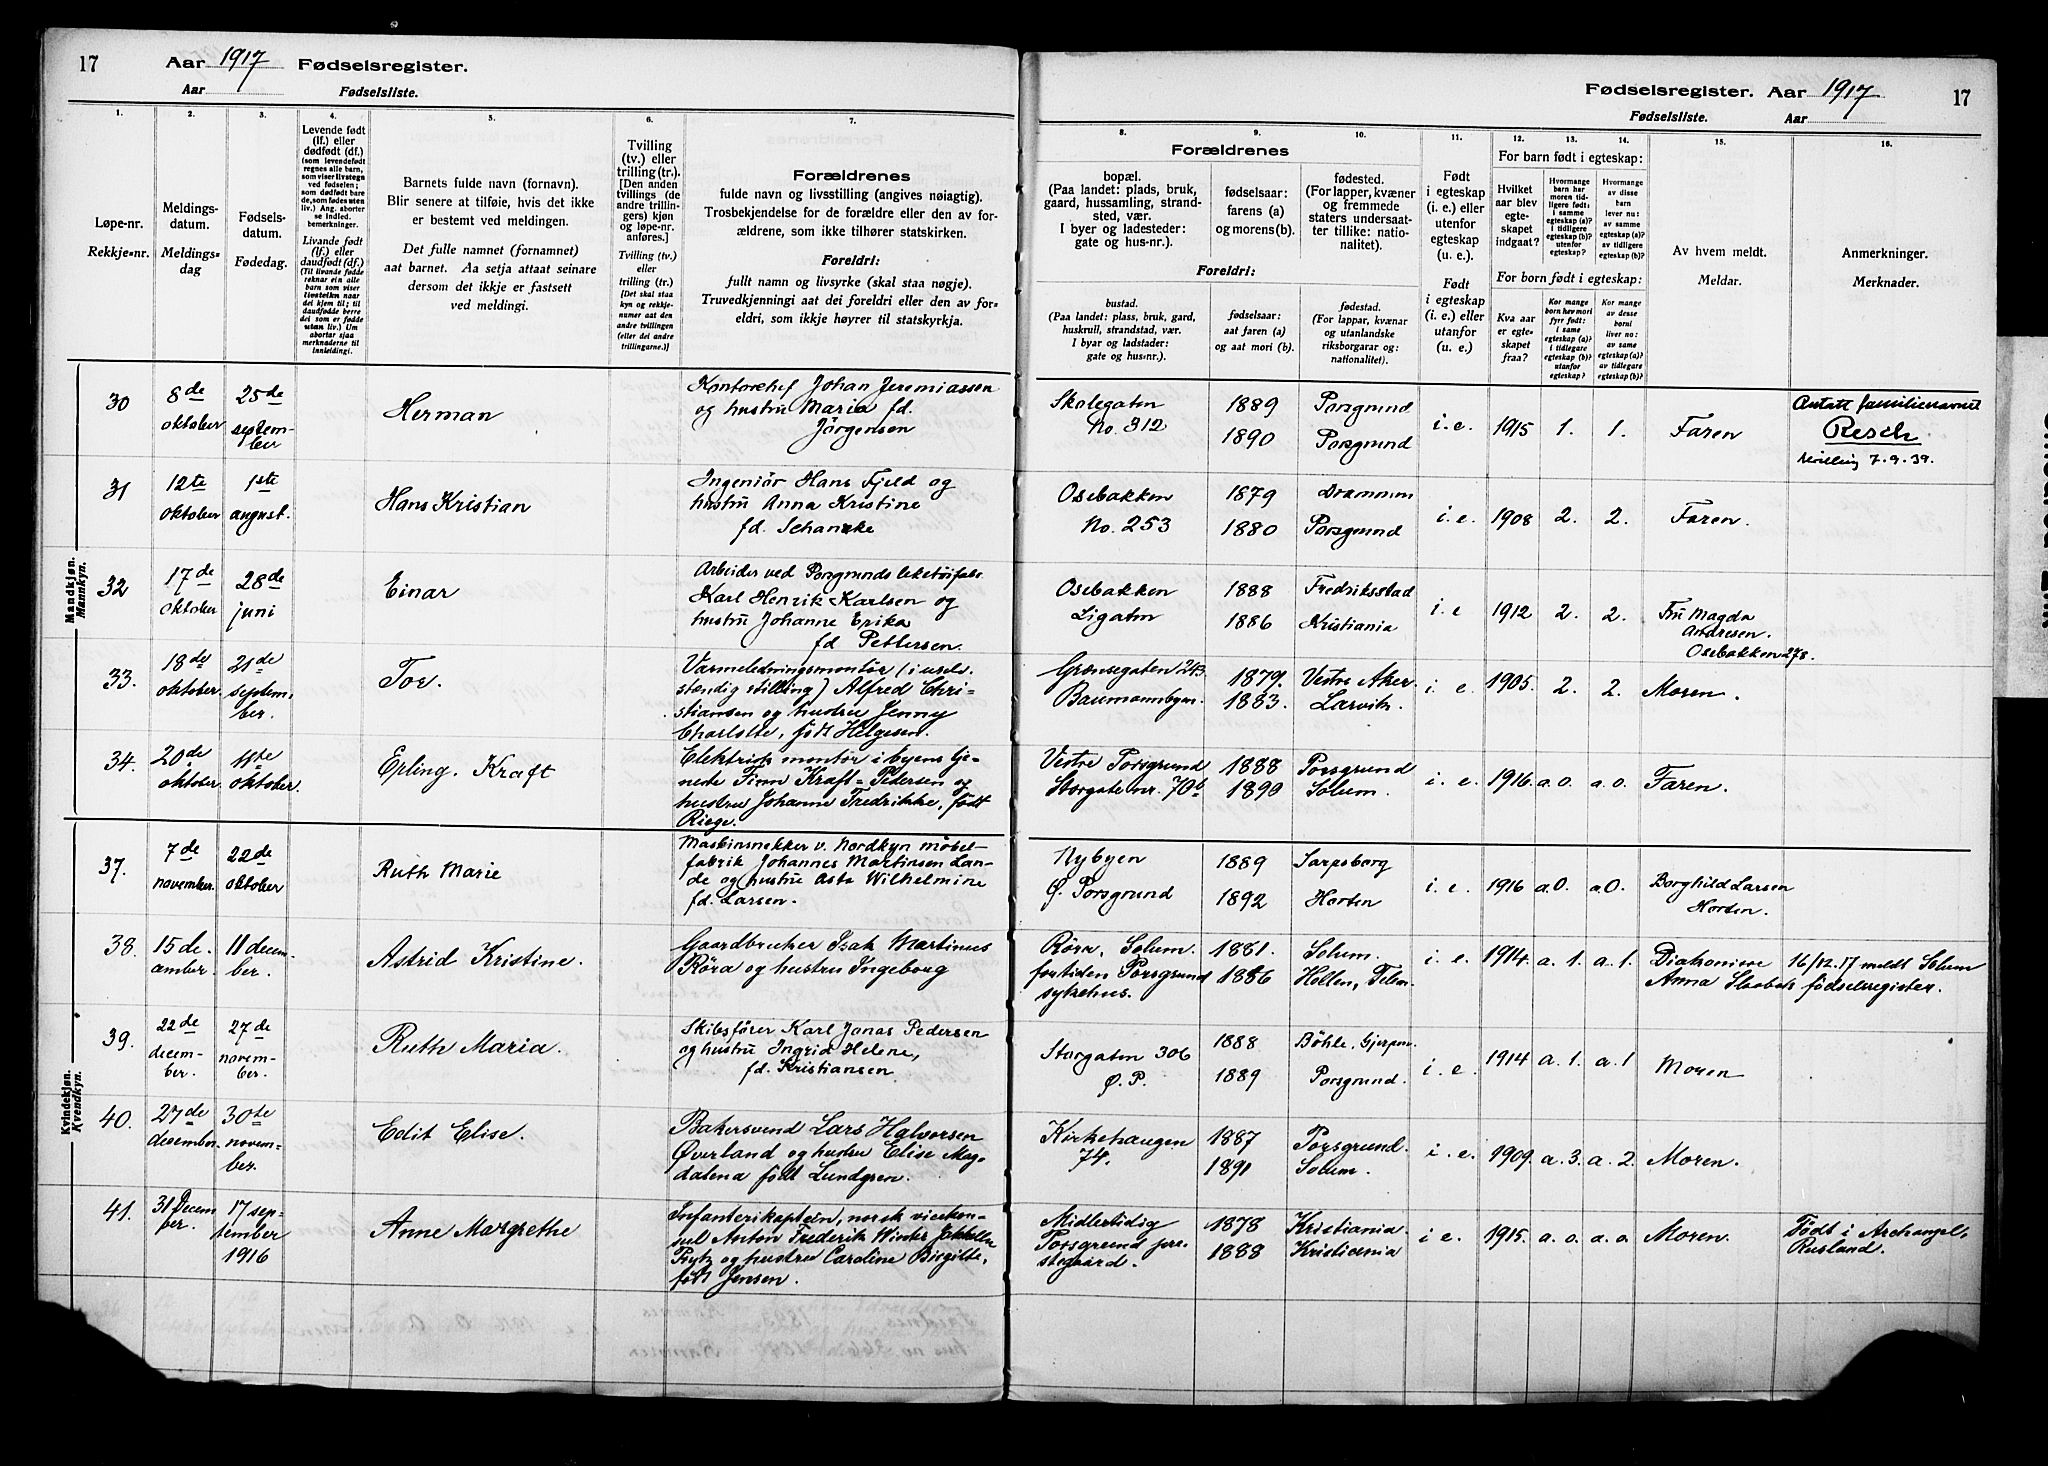 17 Aar 1917 Fødselsregister.
Aar Fødselsliste.
Fødselsregister. Aar 1917 17
Fødselsliste. Aar
1. 2. 3. 4. 5. 6. 7.
Løpe-nr.
Rekkje-nr.
Meldings-
datum.
Meldings-
dag
Fødsels-
datum.
Fødedag.
Levende født
(lf.) eller
dødfødt (df.)
(som levendefødt
regnes alle barn,
som viser livstegn
ved fødselen;
som dødfødt bare
de, som fødes uten
liv.) Ang. aborter
se indled.
bemerkninger.
Livande født
(lf.) eller
daudfødt (df.)
(Til livande fødde
reknar ein alle
barn som viser
livsteikn naar
dei kjem til; til
daudfødde berre
dei som er fødde
utan liv.) Um
abortar sjaa
merknaderne til
innleidingi.
Barnets fulde navn (fornavn).
Blir senere at tilføie, hvis det ikke
er bestemt ved meldingen.
Det fulle namnet (fornamnet)
aat barnet. Aa setja attaat seinare
dersom det ikkje er fastsett
ved meldingi.
Tvilling
(tv.) eller
trilling (tr.).
[Den anden
tvillings (de
andre trillin-
gers) kjøn
og løpe-nr.
anføres.]
Tvilling (tv.)
eller
trilling (tr.)
[Det skal staa
kyn og rekkje-
numer aat den
andre tvillingen
(eller dei andre
trillingarne.)]
Forældrenes
fulde navn og livsstilling (angives nøiagtig).
Trosbekjendelse for de forældre eller den av for-
ældrene, som ikke tilhører statskirken.
Foreldri:
fullt namn og livsyrke (skal staa nøgje).
Truvedkjenningi aat dei foreldri eller den av for-
eldri, som ikkje høyrer til statskyrkja.
8. 9. 10. 11. 12. 13. 14. 15. 16.
Forældrenes
bopæl.
(Paa landet: plads, bruk,
gaard, hussamling, strand-
sted, vær.
I byer og ladesteder:
gate og hus-nr.).
fødselsaar:
farens (a)
og morens (b).
fødested.
(For lapper, kvæner
og fremmede
staters undersaat-
ter tillike: natio-
nalitet).
Foreldri:
bustad.
(Paa landet: plass, bruk, gard,
huskrull, strandstad, vær.
I byar og ladstader:
gate og hus-nr.).
fødselsaar:
aat faren (a)
og aat mori (b).
fødestad.
(For lappar, kvænar
og utanlandske
riksborgarar og:
nationalitet).
Født
i egteskap
(i. e.) eller
utenfor
egteskap
(u. e.).
Født
i egteskap
(i. e.) eller
utanfor
(u. e.).
For barn født i egteskap:
Hvilket
aar blev
egte-
skapet
indgaat?
Hvormange
barn har
moren tid-
ligere født:
i samme
egteskap (a)?
i tidligere
egteskap (b)?
utenfor
egteskap?
Hvormange
av disse
barn
lever nu:
av samme
egteskap (a)?
av tidligere
egteskap (b)?
For born født i egteskap:
Kva aar
er egte-
skapet
fraa?
Kor mange
born hev mori
fyrr født:
i same
egteskap (a)?
i tidlegare
egteskap (b)?
utanfor
egteskap?
Kor mange
av desse
borni
liver no:
av same
egteskap (a)?
av tidlegare
egteskap (b)?
Av hvem meldt.
Meldar.
Anmerkninger.
Merknader.
Mandkjøn.
Mannkyn.
30 8de oktober 25de septem-ber Herman Kontorchef Johan Jeremiassen
og hustru Maria fd.
Jörgensen
Skolegaten No. 312 1889 1890 Porsgrund Porsgrund i. e. 1915 1. 1. Faren Antatt familienavnet
Resch
7.9.39.
31 12te oktober 1ste august. Hans Kristian Ingeniör Hans Fjeld og
hustru Anna Kristine
fd. Schancke
Osebakken No. 253 1879 1880 Drammen Porsgrund i. e. 1908 2. 2. Faren.
32 17de oktober 28de juni Einar Arbeider ved Porsgrunds leketöifabr.
Karl Henrik Karlsen og
hustru Johanne Erika
fd Pettersen.
Osebakken Ligaten 1888 1886 Fredriksstad Kristiania i. e 1912 2. 2. Fru Magda
Andresen.
Osebakken 278.
33. 18de oktober. 21de septem-ber. Tor. Varmeledningsmontör (i selv-
stændig stilling) Alfred Chri-
stiansen og hustru Jenny
Charlotte, født Helgesen.
Grænsegaten 213 Baumannbyen. 1879. 1883. Vestre Aker. Larvik. i. e. 1905. 2. 2. Moren.
34. 20de oktober 11te oktober. Erling. Kraft Elektrisk montör i byens tje-
neste Finn Kraft-Pedersen og
hustru Johanne Fredrikke, født
Riege.
Vestre Porsgrund Storgate nr. 70b 1888 1890 Porsgrund Solum. i. e. 1916. a. 0. a. 0. Faren.
Kvindekjøn.
Kvendkyn.
37. 7de november. 22de oktober Ruth Marie Maskinsnekker v. Nordkyn möbel-
fabrik Johannes Martinsen Lan-
de og hustru Asta Wilhelmine
fd. Larsen.
Nybyen Ø. Porsgrund 1889 1892 Sarpsborg Horten i. e. 1916 a. 0. a. 0. Borghild Larsen
Horten.
38. 15 de-cember. 11 decem-ber. Astrid Kristine. Gaardbruker Isak Martinus
Röra og hustru Ingeborg
Röra, Solum.
fortiden Porsgrund
sykehus.
1881. 1886 Solum. Hollen, Telem. i. e. 1914. a. 1. a. 1. Diakonisse
Anna 16/12.17 meldt Solum
fødselsregister.
39. 22de decem-ber. 27de novem-ber. Ruth Maria. Skibsfører Karl Jonas Pedersen
og hustru Ingrid Helene,
fd. Kristiansen
Storgaten 306 Ø. P. 1888 1889 Böhle, Gjerpen. Porsgrund. i. e. 1914 a. 1. a. 1 Moren
40. 27de december. 30te novem-ber. Edit Elise. Bakersvend Lars Halvorsen
Øverland og hustru Elise Mag-
dalena født Lundgren.
Kirkehaugen 74. 1887 1891 Porsgrund. Solum. i. e. 1909. a. 3. a. 2. Moren.
41. 31 Decem-ber. 17 sep-tember 1916 Anne Margrethe Infanterikaptein, norsk vicekon-
sul Anton Frederik Winter Jakhelln
Prytz og hustru Caroline Birgitte,
født Jensen.
Midlertidig
Porsgrund pre-
stegaard.
1878 1888 Kristiania. Kristiania i e. 1915. a. o. a. o Moren. Født i Archangel,
Rusland.